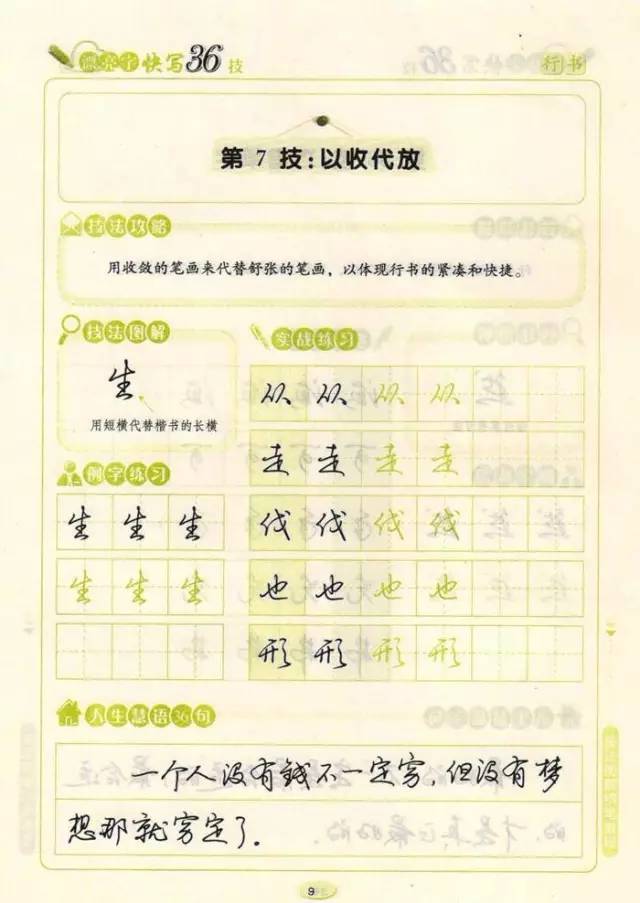 漂亮字快写36技
行书
第 7 技：以收代放
技法攻略
用收敛的笔画来代替舒张的笔画，以体现行书的紧凑和快捷。
技法图解
生
用短横代替楷书的长横
例字练习
生 生 生
生 生 生
实战练习
从 从 从 从
走 走 走 走
伐 伐 伐 伐
也 也 也 也
形 形 形 形
人生慧语36句
一个人没有錢不一定穷，但没有梦
想那就穷定了.
9